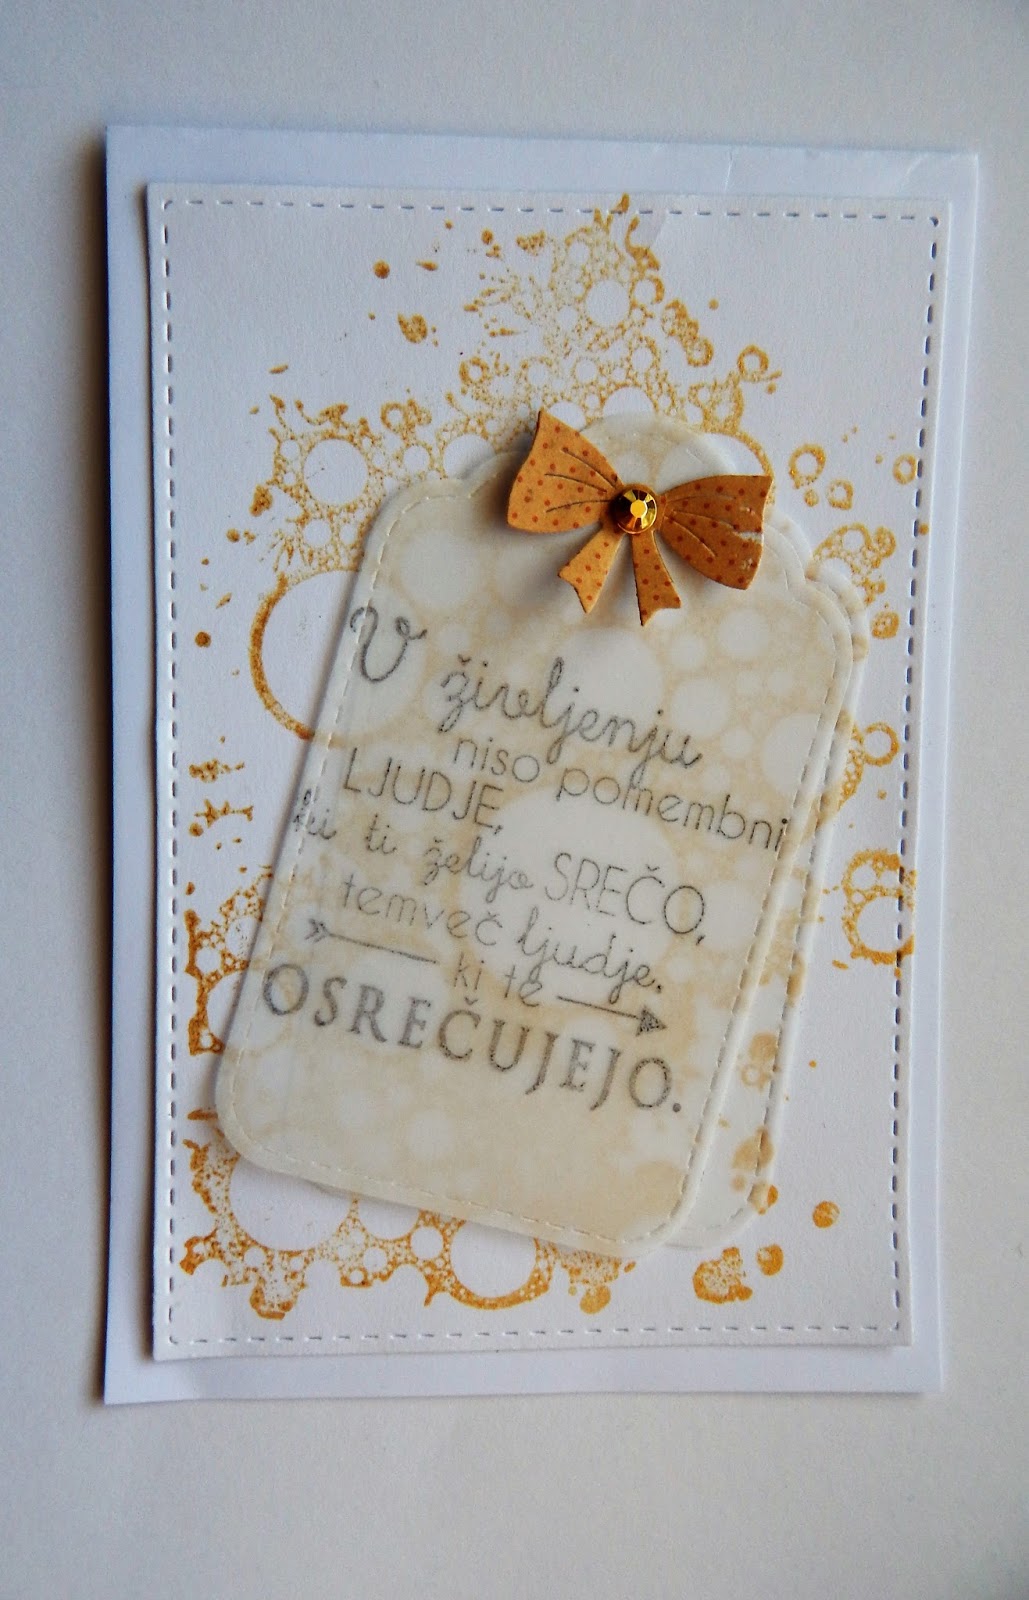 V življenju
niso pomembni
LJUDJE,
ki ti želijo SREČO,
temveč ljudje,
ki te
OSREČUJEJO.